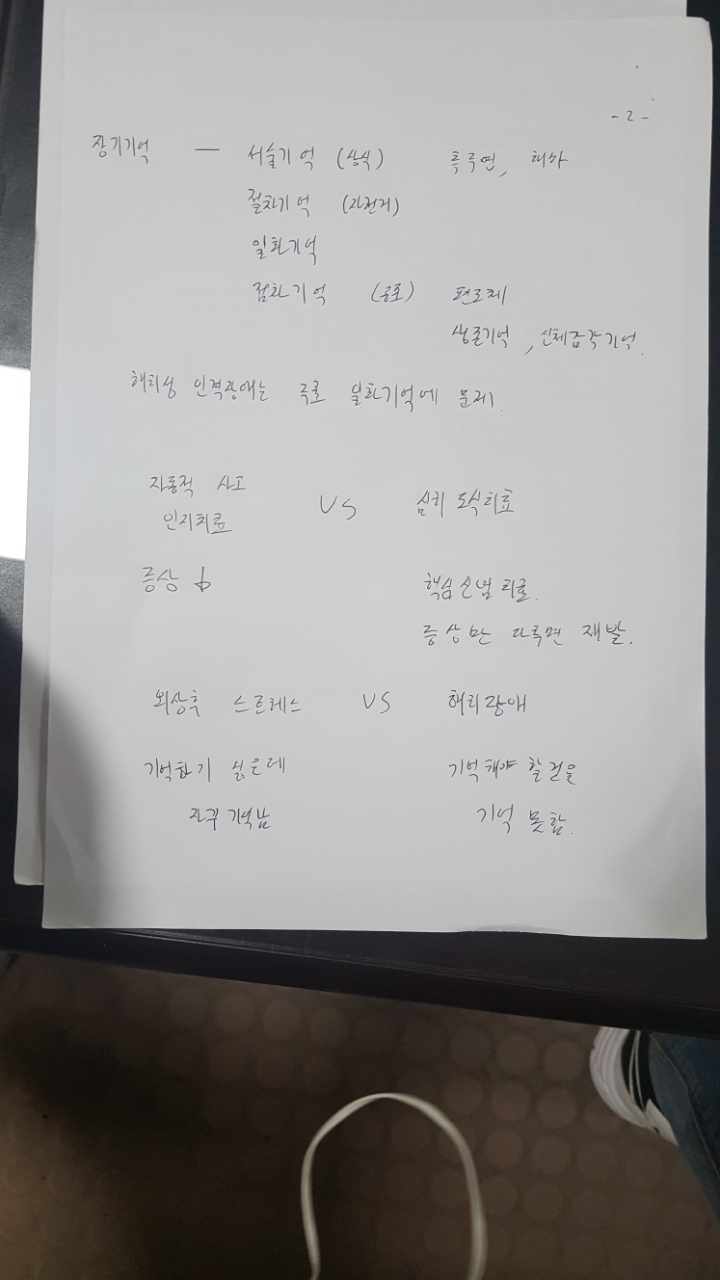 - 2 -
장기기억 — 서술기억 (상식) 측두엽, 해마
절차기억 (자전거)
일화기억
점화기억 (공포) 편도체
생존기억, 신체감각기억.
해리성 인격장애는 주로 일화기억에 문제.
자동적 사고 VS 심리도식치료
인지치료
증상 ↓ 핵심신념 치료.
증상만 다루면 재발.
외상후 스트레스 VS 해리장애
기억하기 싫은데 기억해야 할 것을
자꾸 기억남 기억 못함.